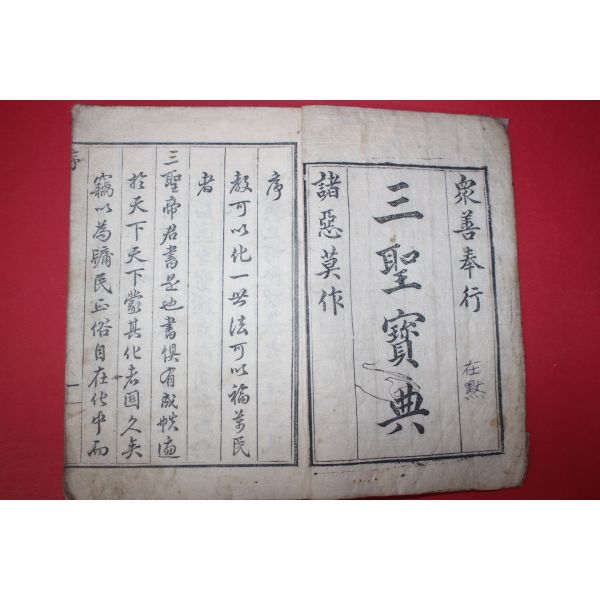 衆善奉行
在黙
三聖寳典
諸惡莫作
序
教可以化一世法可以福萬民
者
三聖帝君書是也書俱有成帙遍
於天下天下蒙其化者固久矣
竊以為牖民正俗自在化中而
序
一